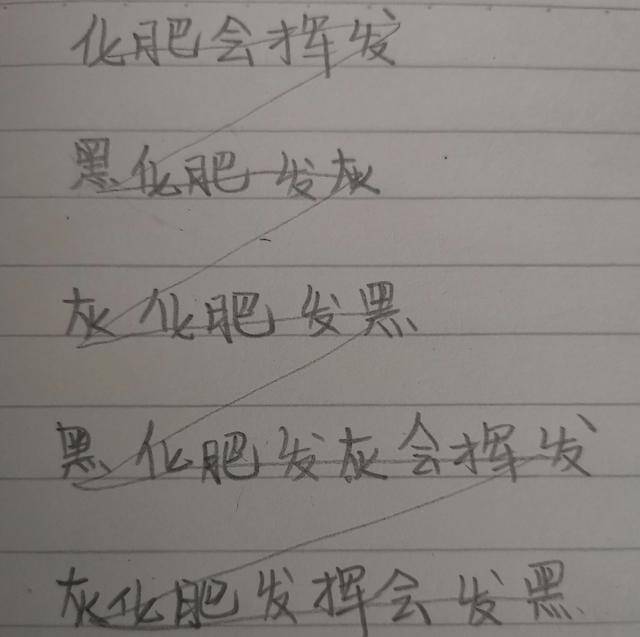 化肥会挥发
黑化肥发灰
灰化肥发黑
黑化肥发灰会挥发
灰化肥发挥会发黑